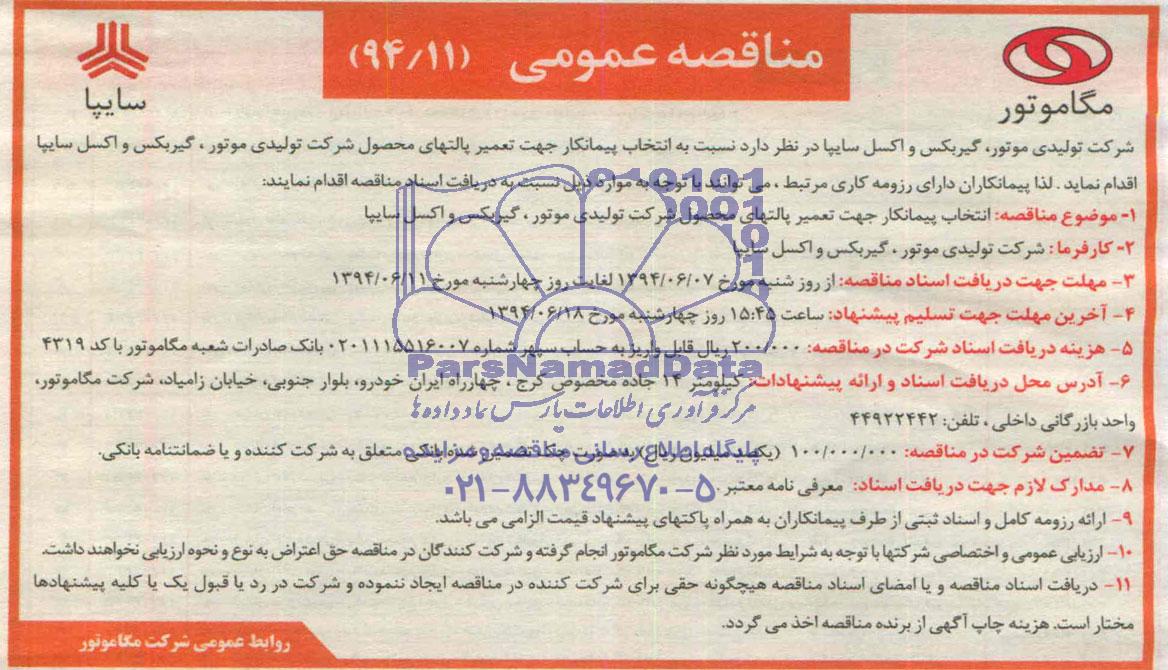 مناقصه عمومی (۹۴/۱۱)
مگاموتور
سایپا
شرکت تولیدی موتور، گیربکس و اکسل سایپا در نظر دارد نسبت به انتخاب پیمانکار جهت تعمیر پالتهای محصول شرکت تولیدی موتور ، گیربکس و اکسل سایپا
اقدام نماید . لذا پیمانکاران دارای رزومه کاری مرتبط ، می توانند با توجه به موارد ذیل نسبت به دریافت اسناد مناقصه اقدام نمایند:
۱- موضوع مناقصه: انتخاب پیمانکار جهت تعمیر پالتهای محصول شرکت تولیدی موتور ، گیربکس و اکسل سایپا
۲- کارفرما : شرکت تولیدی موتور ، گیربکس و اکسل سایپا
۳- مهلت جهت دریافت اسناد مناقصه: از روز شنبه مورخ ۱۳۹۴/۰۶/۰۷ لغایت روز چهارشنبه مورخ ۱۳۹۴/۰۶/۱۱
۴- آخرین مهلت جهت تسلیم پیشنهاد: ساعت ۱۵:۴۵ روز چهارشنبه مورخ ۱۳۹۴/۰۶/۱۸
۵- هزینه دریافت اسناد شرکت در مناقصه: ۲۰۰/۰۰۰ ریال قابل واریز به حساب سپهر شماره ۰۲۰۱۱۱۵۵۱۶۰۰۷ بانک صادرات شعبه مگاموتور با کد ۴۳۱۹
ParsNamadData
۶- آدرس محل دریافت اسناد و ارائه پیشنهادات: کیلومتر ۱۴ جاده مخصوص کرج ، چهارراه ایران خودرو، بلوار جنوبی، خیابان زامیاد، شرکت مگاموتور،
مرکز فرآوری اطلاعات پارس نماد داده ها
واحد بازرگانی داخلی ، تلفن: ۴۴۹۲۲۴۴۲
۷- تضمین شرکت در مناقصه: ۱۰۰/۰۰۰/۰۰۰ (یکصد میلیون ریال) به صورت چک تضمین شده بانکی متعلق به شرکت کننده و یا ضمانتنامه بانکی.
پایگاه اطلاع رسانی مناقصه و مزایده
۸- مدارک لازم جهت دریافت اسناد: معرفی نامه معتبر .
۰۲۱-۸۸۳۴۹۶۷۰-۵
۹- ارائه رزومه کامل و اسناد ثبتی از طرف پیمانکاران به همراه پاکتهای پیشنهاد قیمت الزامی می باشد.
۱۰- ارزیابی عمومی و اختصاصی شرکتها با توجه به شرایط مورد نظر شرکت مگاموتور انجام گرفته و شرکت کنندگان در مناقصه حق اعتراض به نوع و نحوه ارزیابی نخواهند داشت.
۱۱- دریافت اسناد مناقصه و یا امضای اسناد مناقصه هیچگونه حقی برای شرکت کننده در مناقصه ایجاد ننموده و شرکت در رد یا قبول یک یا کلیه پیشنهادها
مختار است. هزینه چاپ آگهی از برنده مناقصه اخذ می گردد.
روابط عمومی شرکت مگاموتور